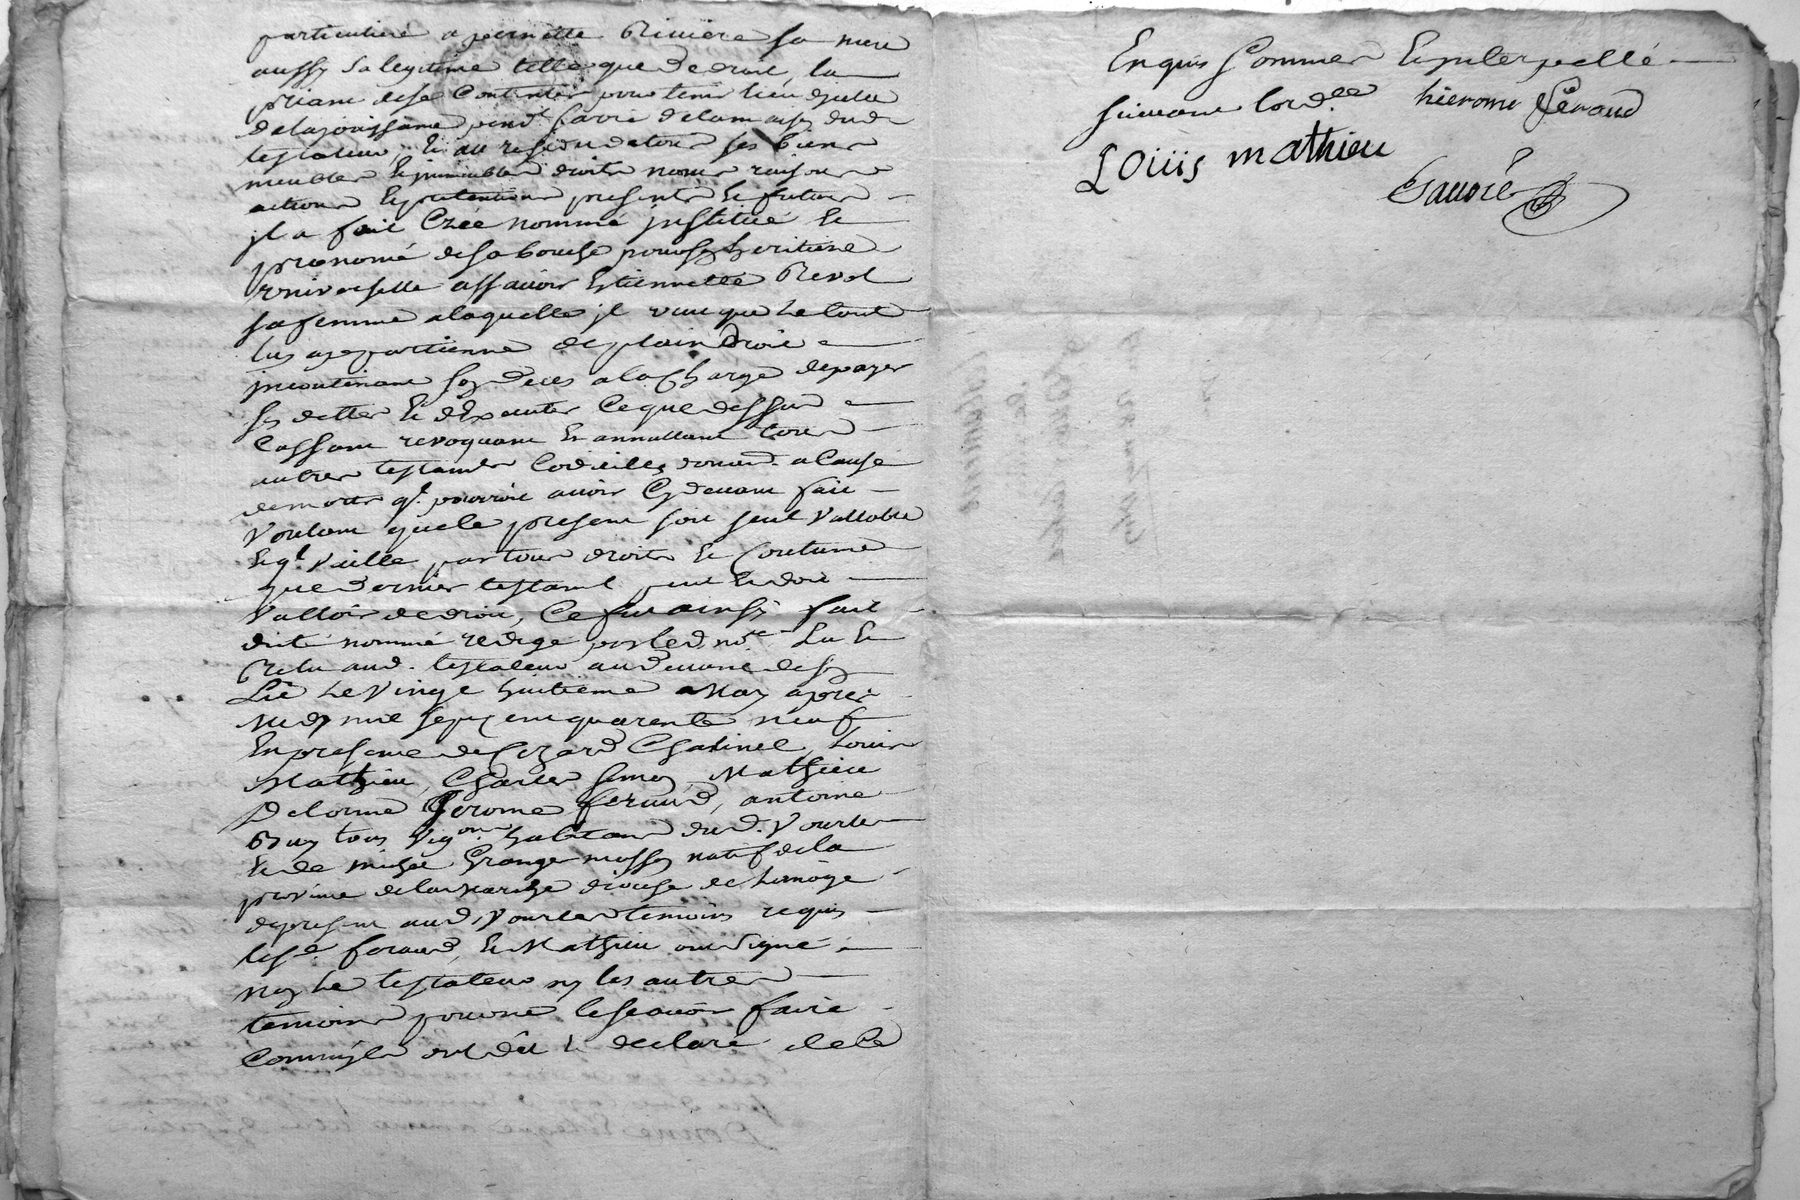 particuliere a pernette Riviere sa mere
aussy sa legitime telle que de droit, la
priant de se contenter pour tenir lieu d'icelle
de la jouissance pend.t sa vie de la maison dud.
testateur Et au residu de tous ses biens
meubles Et immeubles droits noms raisons
actions Et pretentions presents Et futurs
jl a fait Créé nommé jnstitué Et
prenomé de sa bouche pour son heritiere
vniverselle assavoir Estiennette Revol
sa femme a laquelle jl veut que Le tout
luy appartienne de plain droit
jncontinant son deces a la Charge de payer
ses dettes Et d'Executer Ce que dessus
Cassant revoquant Et annullant tous
autres testaments Codicilles donnaõ. a Cause
de mort q'l pourroit avoir Cy devant fait
Voulant que le present soit seul Vallable
Et q'l Vaille par tous droits Et Coutumes
que dernier testamt peut Et doit
Valloir de droit, Ce fut ainsi fait
dicté nommé redigé par led no.re Lu Et
Relu aud. testateur au devant de son
Lit Le Vingt huitieme May apres
Midy mil sept cent quarente neuf
En presence de Cezard Chatinel, Louis
Mathieu, Charles Simon, Mathieu
Delorme Jerome feraud, antoine
Guy tous Vig.ons habitans dud. Vourles
Et de michel Grange masson natif de la
province de la Marche diocese de Limoge
de present aud. Vourles temoins requis
lesd. feraud, Et Mathieu ont signé
non Le testateur ny les autres
temoins pour ne le scavoir faire
Comme ils ont dit Et declaré de Ce
Enquis Sommes Et jnterpellé
suivant lord.ce hierome Feraud
LOUiis mathieu